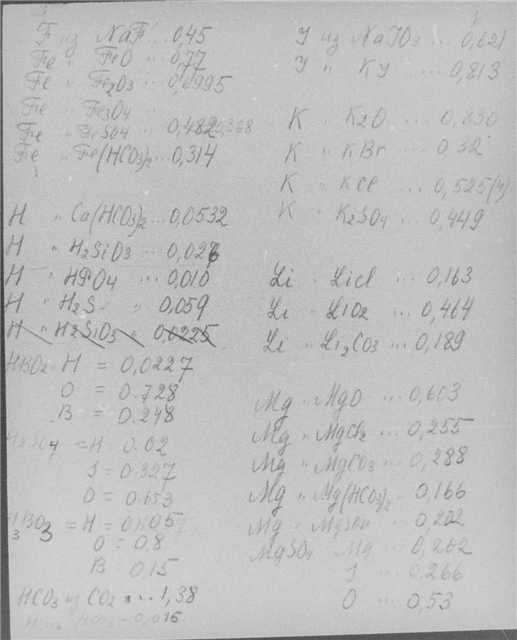 F из NaF ... 0,45
Fe " FeO ... 0,77
Fe " Fe2O3 ... 0,6995
Fe " Fe3O4
Fe " FeSO4 ... 0,482 0,368
Fe " Fe(HCO3)2 ... 0,314
H " Ca(HCO3)2 ... 0,0532
H " H2SiO3 ... 0,026
H " HPO4 ... 0,010
H " H2S " 0,059
H " H2SiO3 " 0,0225
HBO2 H = 0,0227
O = 0.728
B = 0.248
H2SO4 = H 0.02
S = 0.327
O = 0.653
H3BO3 = H = 0.05
O = 0.8
B = 0.15
HCO3 из CO2 ... 1,38
0,016
J из NaJO3 ... 0,621
J " KJ ... 0,813
K " K2O ... 0,830
K " KBr ... 0,32
K " KCl ... 0,525(4)
K " K2SO4 ... 0,449
Li " LiCl ... 0,163
Li " LiO2 ... 0,464
Li " Li2CO3 ... 0,189
Mg " MgO ... 0,603
Mg " MgCl2 ... 0,255
Mg " MgCO3 ... 0,288
Mg " Mg(HCO3)2 ... 0,166
Mg " MgSO4 ... 0,202
MgSO4 Mg ... 0,262
S ... 0,266
O ... 0,53